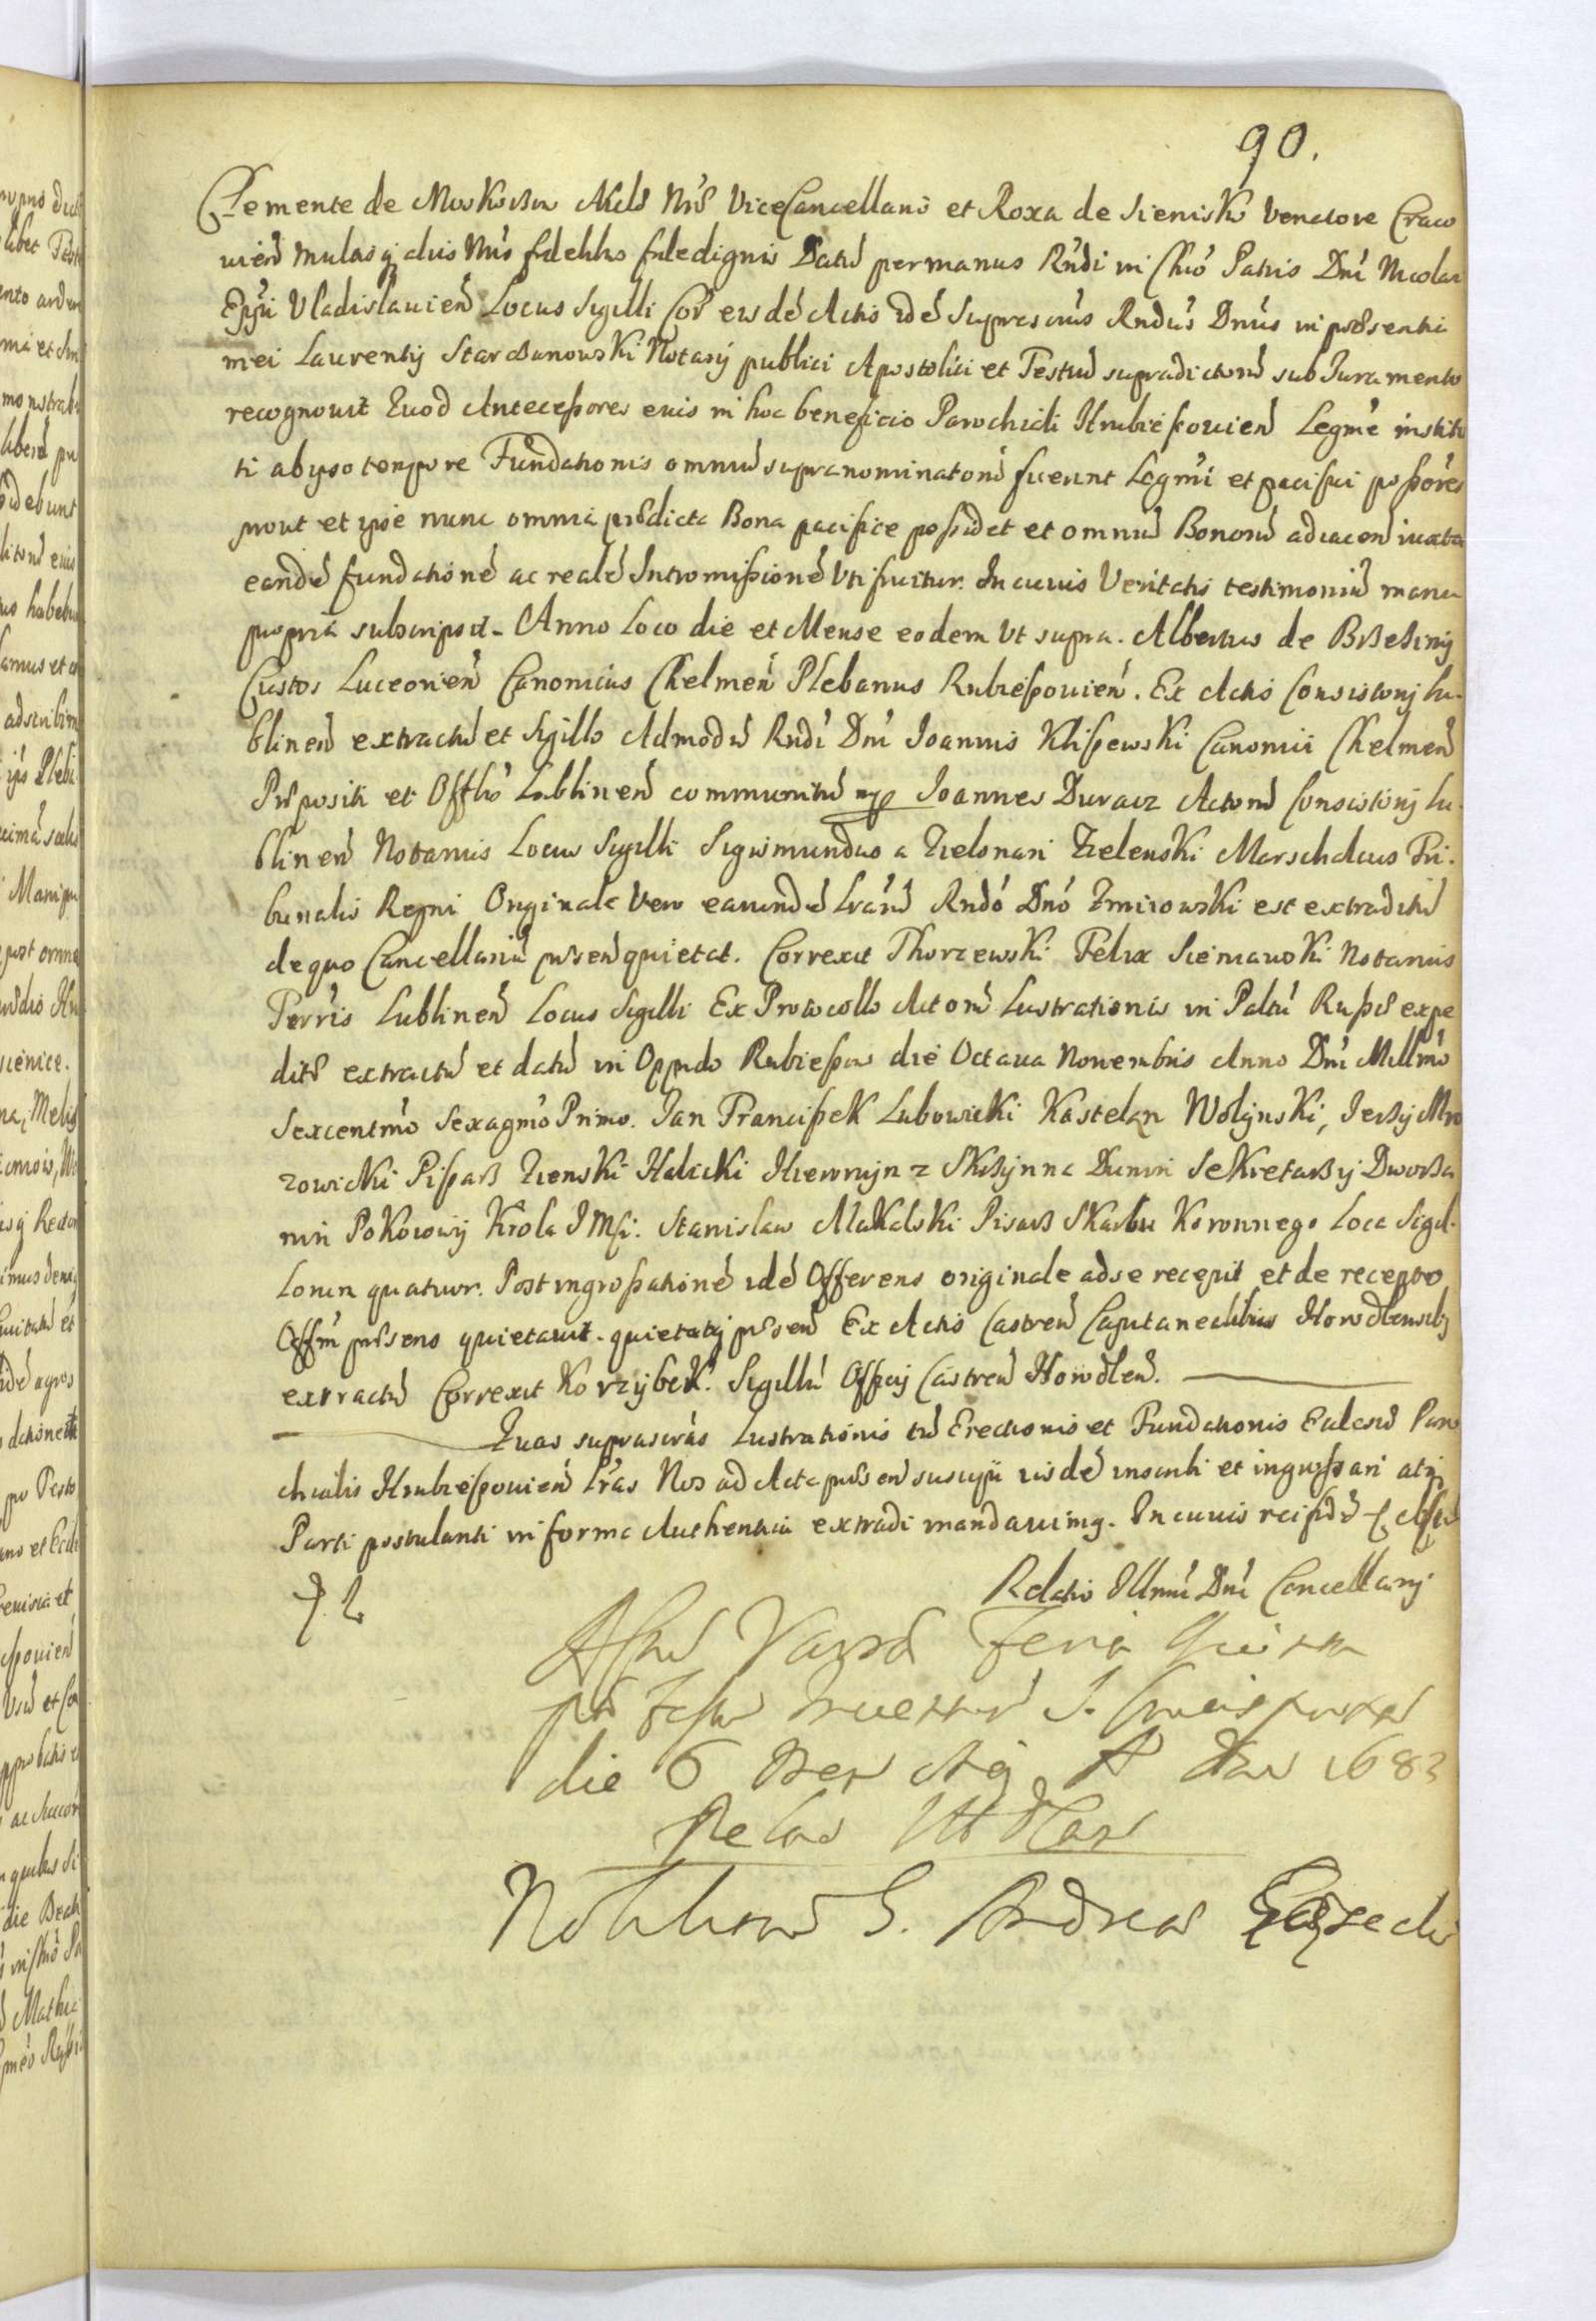 90.
Clemente de Moskorzow Aulæ Nræ ViceCancellario et Roxa de Sienisko Venatore Craco
uien̄ Multisq3 alijs Nris fidelibus fidedignis Datū per manus Rndi in Chro Patris Dni Nicolai
Eppi Vladislauien̄ Locus Sigilli Cor eisdē Actis idē Suprascrius Rndus Dnus in præsentia
mei Laurentij Starczanowski Notarij publici Apostolici et Testiū supradictorū sub Juramento
recognouit Quod Antecessores euis in hoc beneficio Parochiali Hrubiessouien̄ Legme institu
ti ab ipso tempore Fundationis omniū supranominatorū fuerunt Legmi et pacifici possores
prout et ipse nunc omnia prædicta Bona pacifice possidet et omniū Bonorū adiacen̄ iuxta
eandē fundationē ac realē Intromissionē Vtifruitur. In cuius Veritatis testimoniū manu
propria subscripsit. Anno Loco die et Mense eodem Vt supra. Albertus de Brzeziny
Custos Luceorien̄ Canonicus Chelmen̄ Plebanus Rubiessouien̄. Ex Actis Consistorij Lu-
blinen̄ extractū et Sigillo Admodū Rndi Dni Joannis Klissewski Canonici Chelmen̄
Præpositi et Offlis Lublinen̄ communitū mpp Joannes Duracz Actorū Consistorij Lu-
blinen̄ Notarius Locus Sigilli Sigismundus a Zielonari Zielenski Marschalcus Tri-
bunalis Regni Originale Vero earundē Lrarū Rndo Dno Zmirowski est extraditū
de quo Cancellariā præsen̄ quietat. Correxit Thorzewski Felix Siemianoski Notarius
Terris Lublinen̄ Locus Sigilli Ex Protocollo Actorū Lustrationis in Paltu Russiæ expe
ditæ extractū et datū in Oppido Rubiessow die Octaua Nouembris Anno Dni Millmo
Sexcentmo Sexagmo Primo. Jan Francissek Lubowicki Kastelan Wolynski, Jerzy Mro
zowicki Pissarz Ziemski Halicki Hieronijm z Skrzynna Dunin Sekretarzy Dworza
nin Pokoiowy Krola J Mci. Stanislaw Makalski Pisarz Skarbu Koronnego Loca Sigil-
lorum quatuor. Post ingrossationē idē Offerens originale ad se recepit et de recepto
Offm præsens quietauit. quietatq3 præsen̄ Ex Actis Castren̄ Capitanealibus Horodlensib3
extractū Correxit Korzybek. Sigillū Officij Castren̄ Horodlen̄.
Quas suprascrās Lustrationis tū Erectionis et Fundationis Ecclesiæ Paro
chialis Hrubiessouien̄ Lras Nos ad Acta præsen̄ suscipi iisdē inscribi et ingrossari atq3
Parti postulanti in forma Authentica extradi mandauimq. In cuius rei fidē &
Relatio Illmi Dni Cancellarij
Feria Quinta
die 6 Men A D 1683